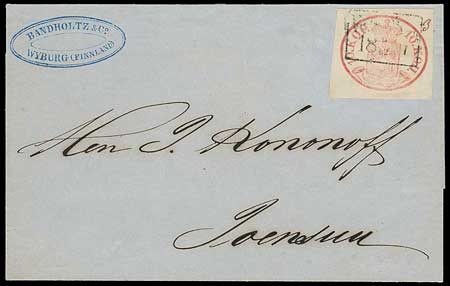 BANDHOLTZ & Co.
WYBURG (FINNLAND)
10 KOP.
18
Herr J. Kononoff
Joensuu